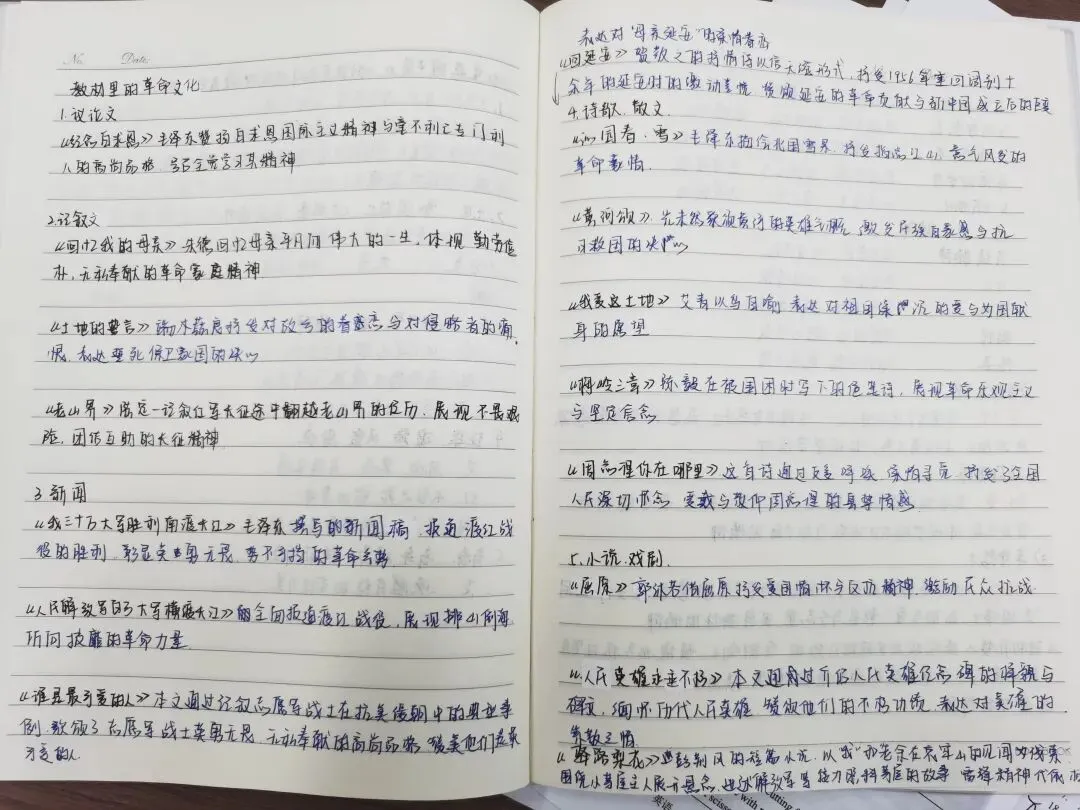 No.  Date.
教材里的革命文化
1.议论文
《纪念白求恩》毛泽东赞扬白求恩国际主义精神与毫不利己专门利
人的高尚品格,号召全党学习其精神
2.记叙文
《回忆我的母亲》朱德回忆母亲平凡而伟大的一生,体现勤劳俭
朴,无私奉献的革命家庭精神
《土地的誓言》端木蕻良抒发对故乡的眷恋与对侵略者的痛
恨,表达誓死保卫家国的决心
《老山界》陆定一记叙红军长征途中翻越老山界的经历,展现不畏艰
险,团结互助的长征精神
3.新闻
《我三十万大军胜利南渡长江》毛泽东撰写的新闻稿,报道渡江战
役的胜利,彰显英勇无畏,势不可挡的革命气势
《人民解放军百万大军横渡长江》的全面报道渡江战役,展现排山倒海
所向披靡的革命力量
《谁是最可爱的人》本文通过叙志愿军战士在抗美援朝中的典型事
例,歌颂了志愿军战士英勇无畏,无私奉献的高尚品格,赞美他们是最
可爱的人.
表达对"母亲延安"的亲情眷恋
《回延安》贺敬之的抒情诗以信天游形式,抒发1956年重回阔别十
余年的延安时的激动喜悦,赞颂延安的革命贡献与新中国成立后的巨
4.诗歌、散文
《沁园春·雪》毛泽东描绘北国雪景,抒发指点江山,意气风发的
革命豪情.
《黄河颂》光未然歌颂黄河的英雄气魄,激发民族自豪感与抗
日救国的决心
《我爱这土地》艾青以鸟自喻,表达对祖国深沉的爱与为国献
身的愿望
《梅岭三章》陈毅在被围困时写下的绝笔诗,展现革命乐观主义
与坚定信念
《周总理你在哪里》这首诗通过反复呼唤,深情寻觅,抒发了全国
人民深切怀念,爱戴与敬仰周总理的真挚情感
5.小说.戏剧.
《屈原》郭沫若借屈原抒发爱国情怀与反抗精神,激励民众抗战.
《人民英雄永垂不朽》本文通过介绍人民英雄纪念碑的样貌与
碑文,缅怀历代人民英雄,赞颂他们的不朽功绩,表达对英雄的
崇敬之情
《驿路梨花》彭荆风的短篇小说,以"我"和老余在哀牢山的见闻为线索
围绕小茅屋主人展开悬念,讲述解放军等接力照料茅屋的故事,雷锋精神代代